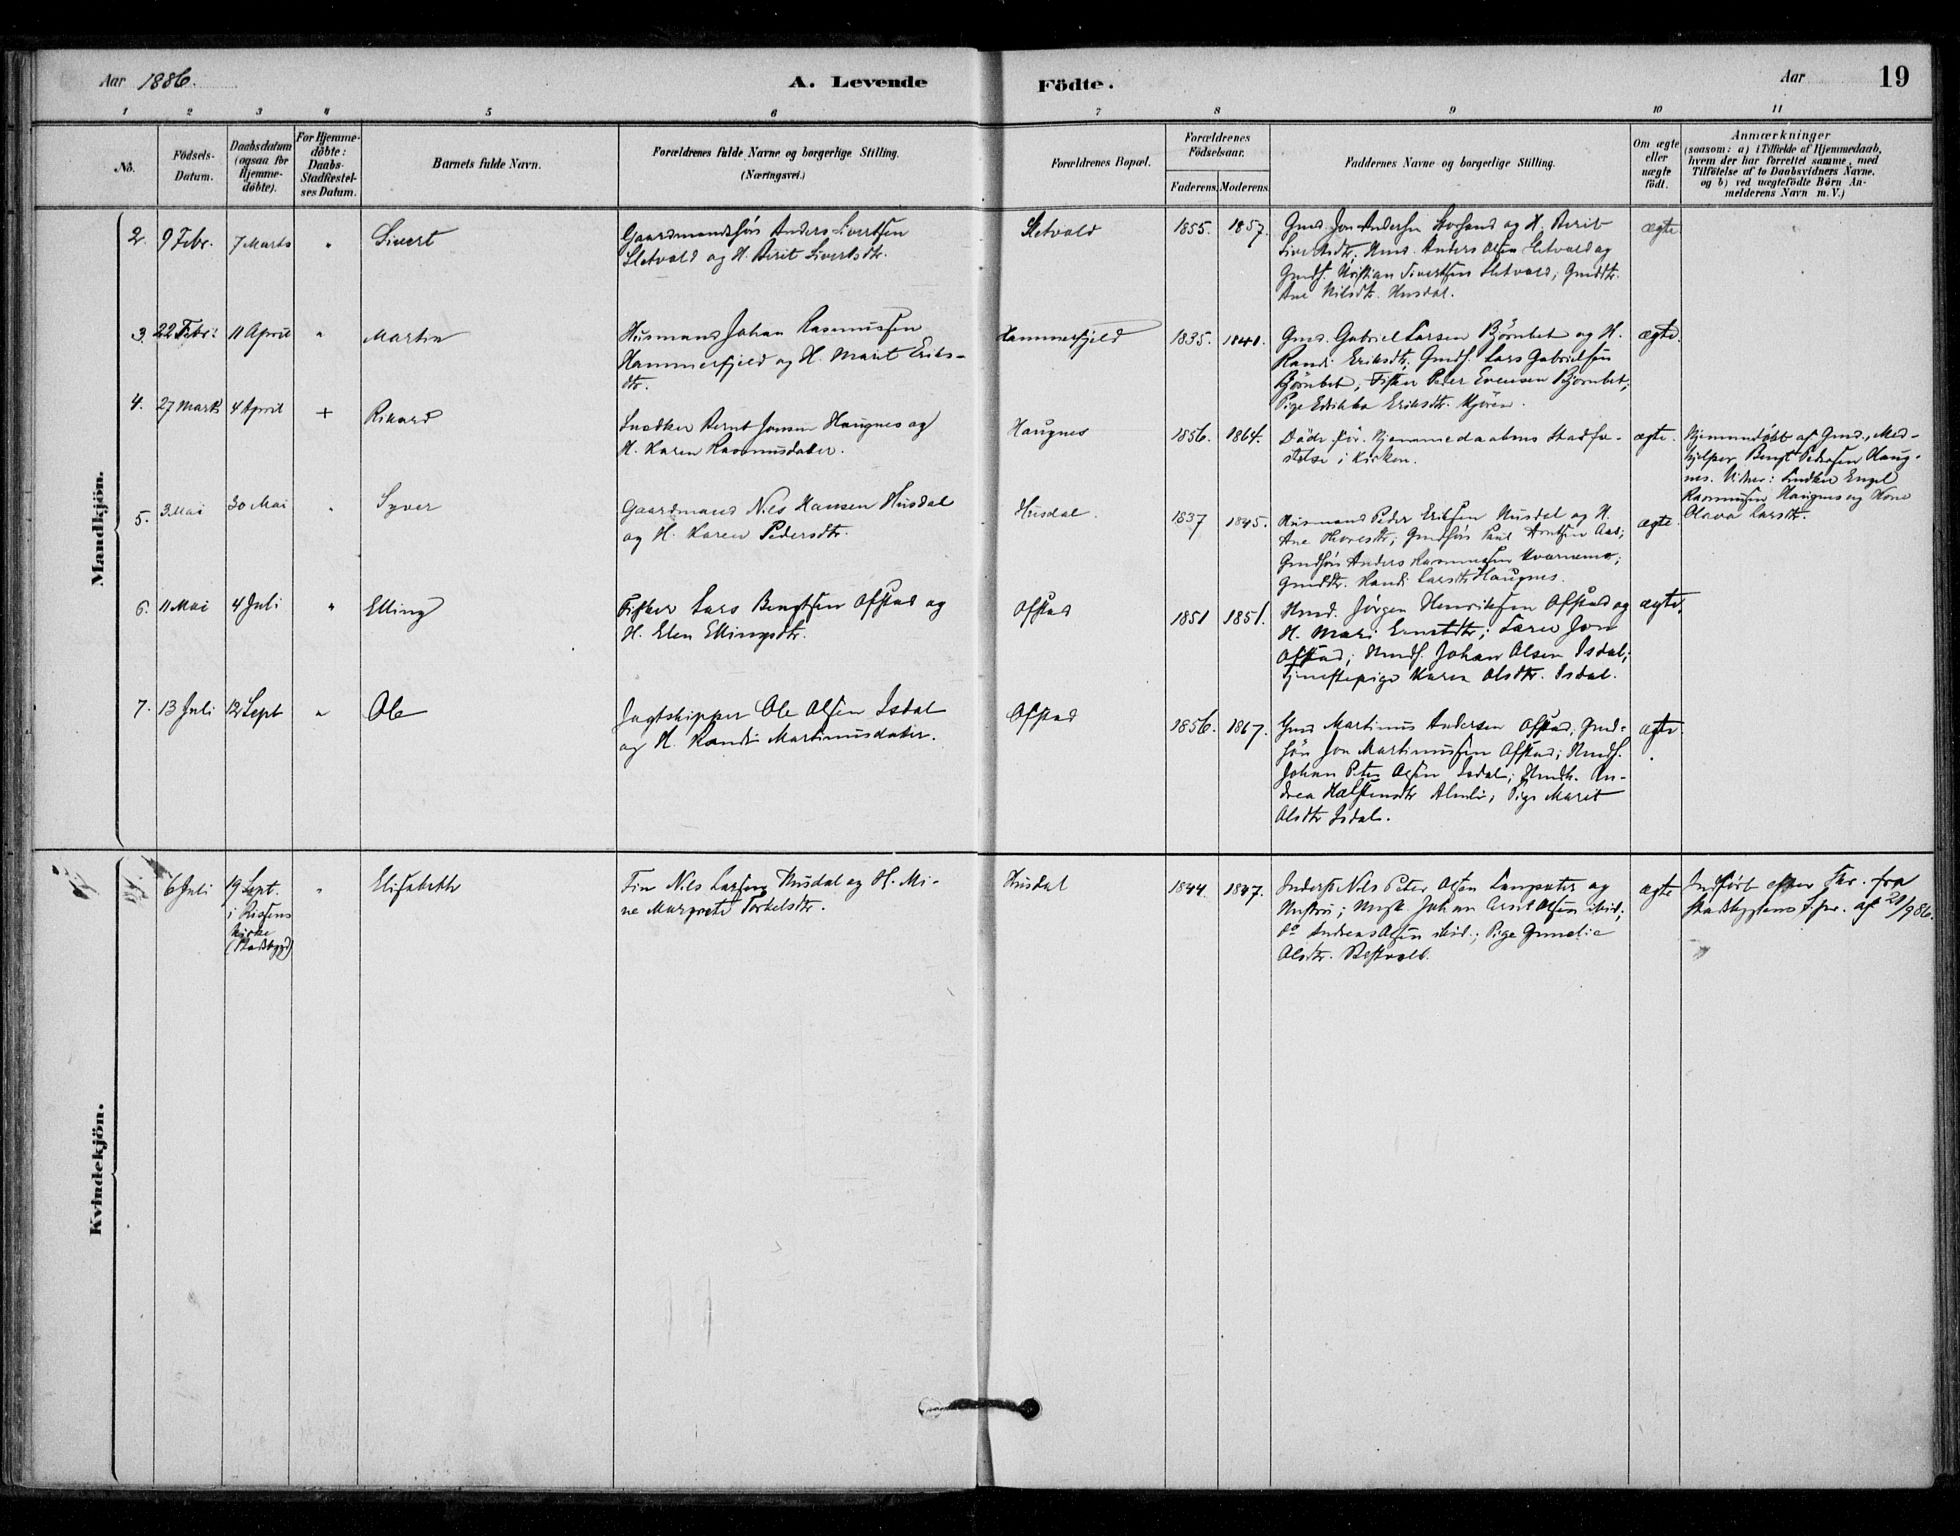 Aar 1886. A. Levende Födte. Aar 19
1 2 3 4 5 6 7 8 9 10 11
No.
Födsels-
Datum.
Daabsdatum
(ogsaa for
Hjemme-
döbte).
For Hjemme-
döbte:
Daabs-
Stadfæstel-
ses Datum.
Barnets fulde Navn.
Forældrenes fulde Navne og borgerlige Stilling.
(Næringsvei.)
Forældrenes Bopæl.
Forældrenes
Födselsaar.
Faderens. Moderens.
Faddernes Navne og borgerlige Stilling.
Om ægte
eller
uægte
födt.
Anmærkninger
(saasom: a) i Tilfælde af Hjemmedaab,
hvem der har forrettet samme, med
Tilföielse af to Daabsvidners Navne,
og b) ved uægtefödte Börn An-
melderens Navn m. V.)
Mandkjön.
2. 9 Febr. 7 Marts " Sivert
Gaardmandssön Anders Sivertsen
Sletvold og H. Berit Sivertsdtr.
Sletvold
1855. 1857.
Gmd. Jon Andersen Storsand og H. Berit
Sivertsdtr. Anders Olsen Sletvold og
Gmds. Kristian Sivertsen Sletvold; Gmddtr.
Ane Nilsdtr. Husdal.
ægte
3. 22 Febr. 11 April " Martin
Husmand Johan Rasmussen
Hammerfjeld og H. Marit Eriks-
dtr.
Hammerfjeld
1835. 1840.
Gmd. Gabriel Larsen Björnbet og H.
Randi Eriksdtr; Gmds. Lars Gabrielsen
Björnbet, Fisker Peder Evensen Björnbet;
Pige Eriksdtr. Kjören.
ægte.
4. 27 Marts 4 April + Rikard
Snedker Bernt Jonsen Haugnes og
H. Karen Rasmusdatter.
Haugnes
1856. 1864.
Döde för Hjemmedaabens Stadfæ-
stelse i Kirken.
ægte.
Hjemmedöbt af Gmd., Med-
hjelper Bengt Pedersen Haug-
nes. Vidner: Snedker Engel
Rasmussen Haugnes og Kone
Olava Larsdtr.
5. 3 Mai 30 Mai " Syver
Gaardmand Nils Hansen Husdal
og H. Karen Pedersdtr.
Husdal.
1837 1845.
Husmand Peder Eriksen Husdal og H.
Ane Thoresdtr; Gmdsön Paul Arntsen Aas;
Gmdsön Anders Rasmussen Kvernemo;
Gmddtr. Randi Larsdtr Haugnes.
ægte.
6. 11 Mai 4 Juli " Elling
Fisker Lars Bengtsen Ofstad og
H. Elen Ellingsdtr.
Ofstad
1851 1851.
Hmd. Jörgen Henriksen Ofstad og
H. Mari Erntsdtr; Lærer Jon
Ofstad; Hmds. Johan Olsen Isdal;
Tjenestepige Karen Olsdtr. Isdal.
ægte.
7. 13 Juli 12 Sept " Ole
Jagtskipper Ole Olsen Isdal
og H. Randi Martinusdatter.
Ofstad
1856. 1867.
Gmd Martinus Andersen Ofstad, Gmd-
sön Jon Martinussen Ofstad; Hmds.
Johan Peter Olsen Isdal; Gmdtr. An-
drea Halstensdtr Almli; Pige Marit
Olsdtr Isdal.
ægte
Kvindekjön.
6 Juli 19 Sept.
i Rissens
Kirke
(Stadsbygd)
" Elisabeth
Fin Nils Larsen Husdal og H. Mi-
ne Margrete Torkelsdtr.
Husdal
1844. 1847.
Inderst Nils Peter Olsen og
Hustru; Ungk. Johan Arnt Olsen ibid.;
Do Andreas Olsen ibid.; Pige
Olsdtr.
ægte
Indfört efter Skr. fra
Stadsbygdens S.pr. af 21/9 86.